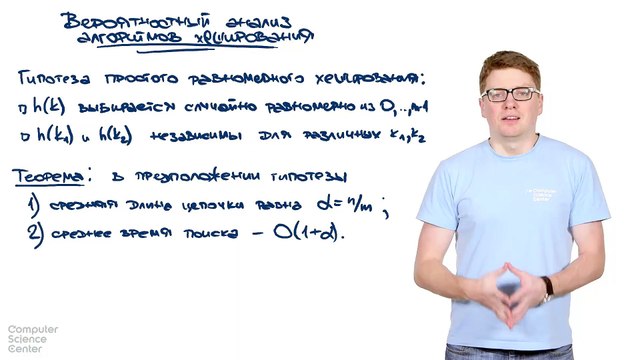 Вероятностный анализ
алгоритмов хеширования
Гипотеза простого равномерного хеширования:
▫ h(k) выбирается случайно равномерно из 0,...,m-1
▫ h(k₁) и h(k₂) независимы для различных k₁,k₂
Теорема: в предположении гипотезы
1) средняя длина цепочки равна α = n/m ;
2) среднее время поиска - O(1+α).
Computer
Science
Center
Computer
Science
Center